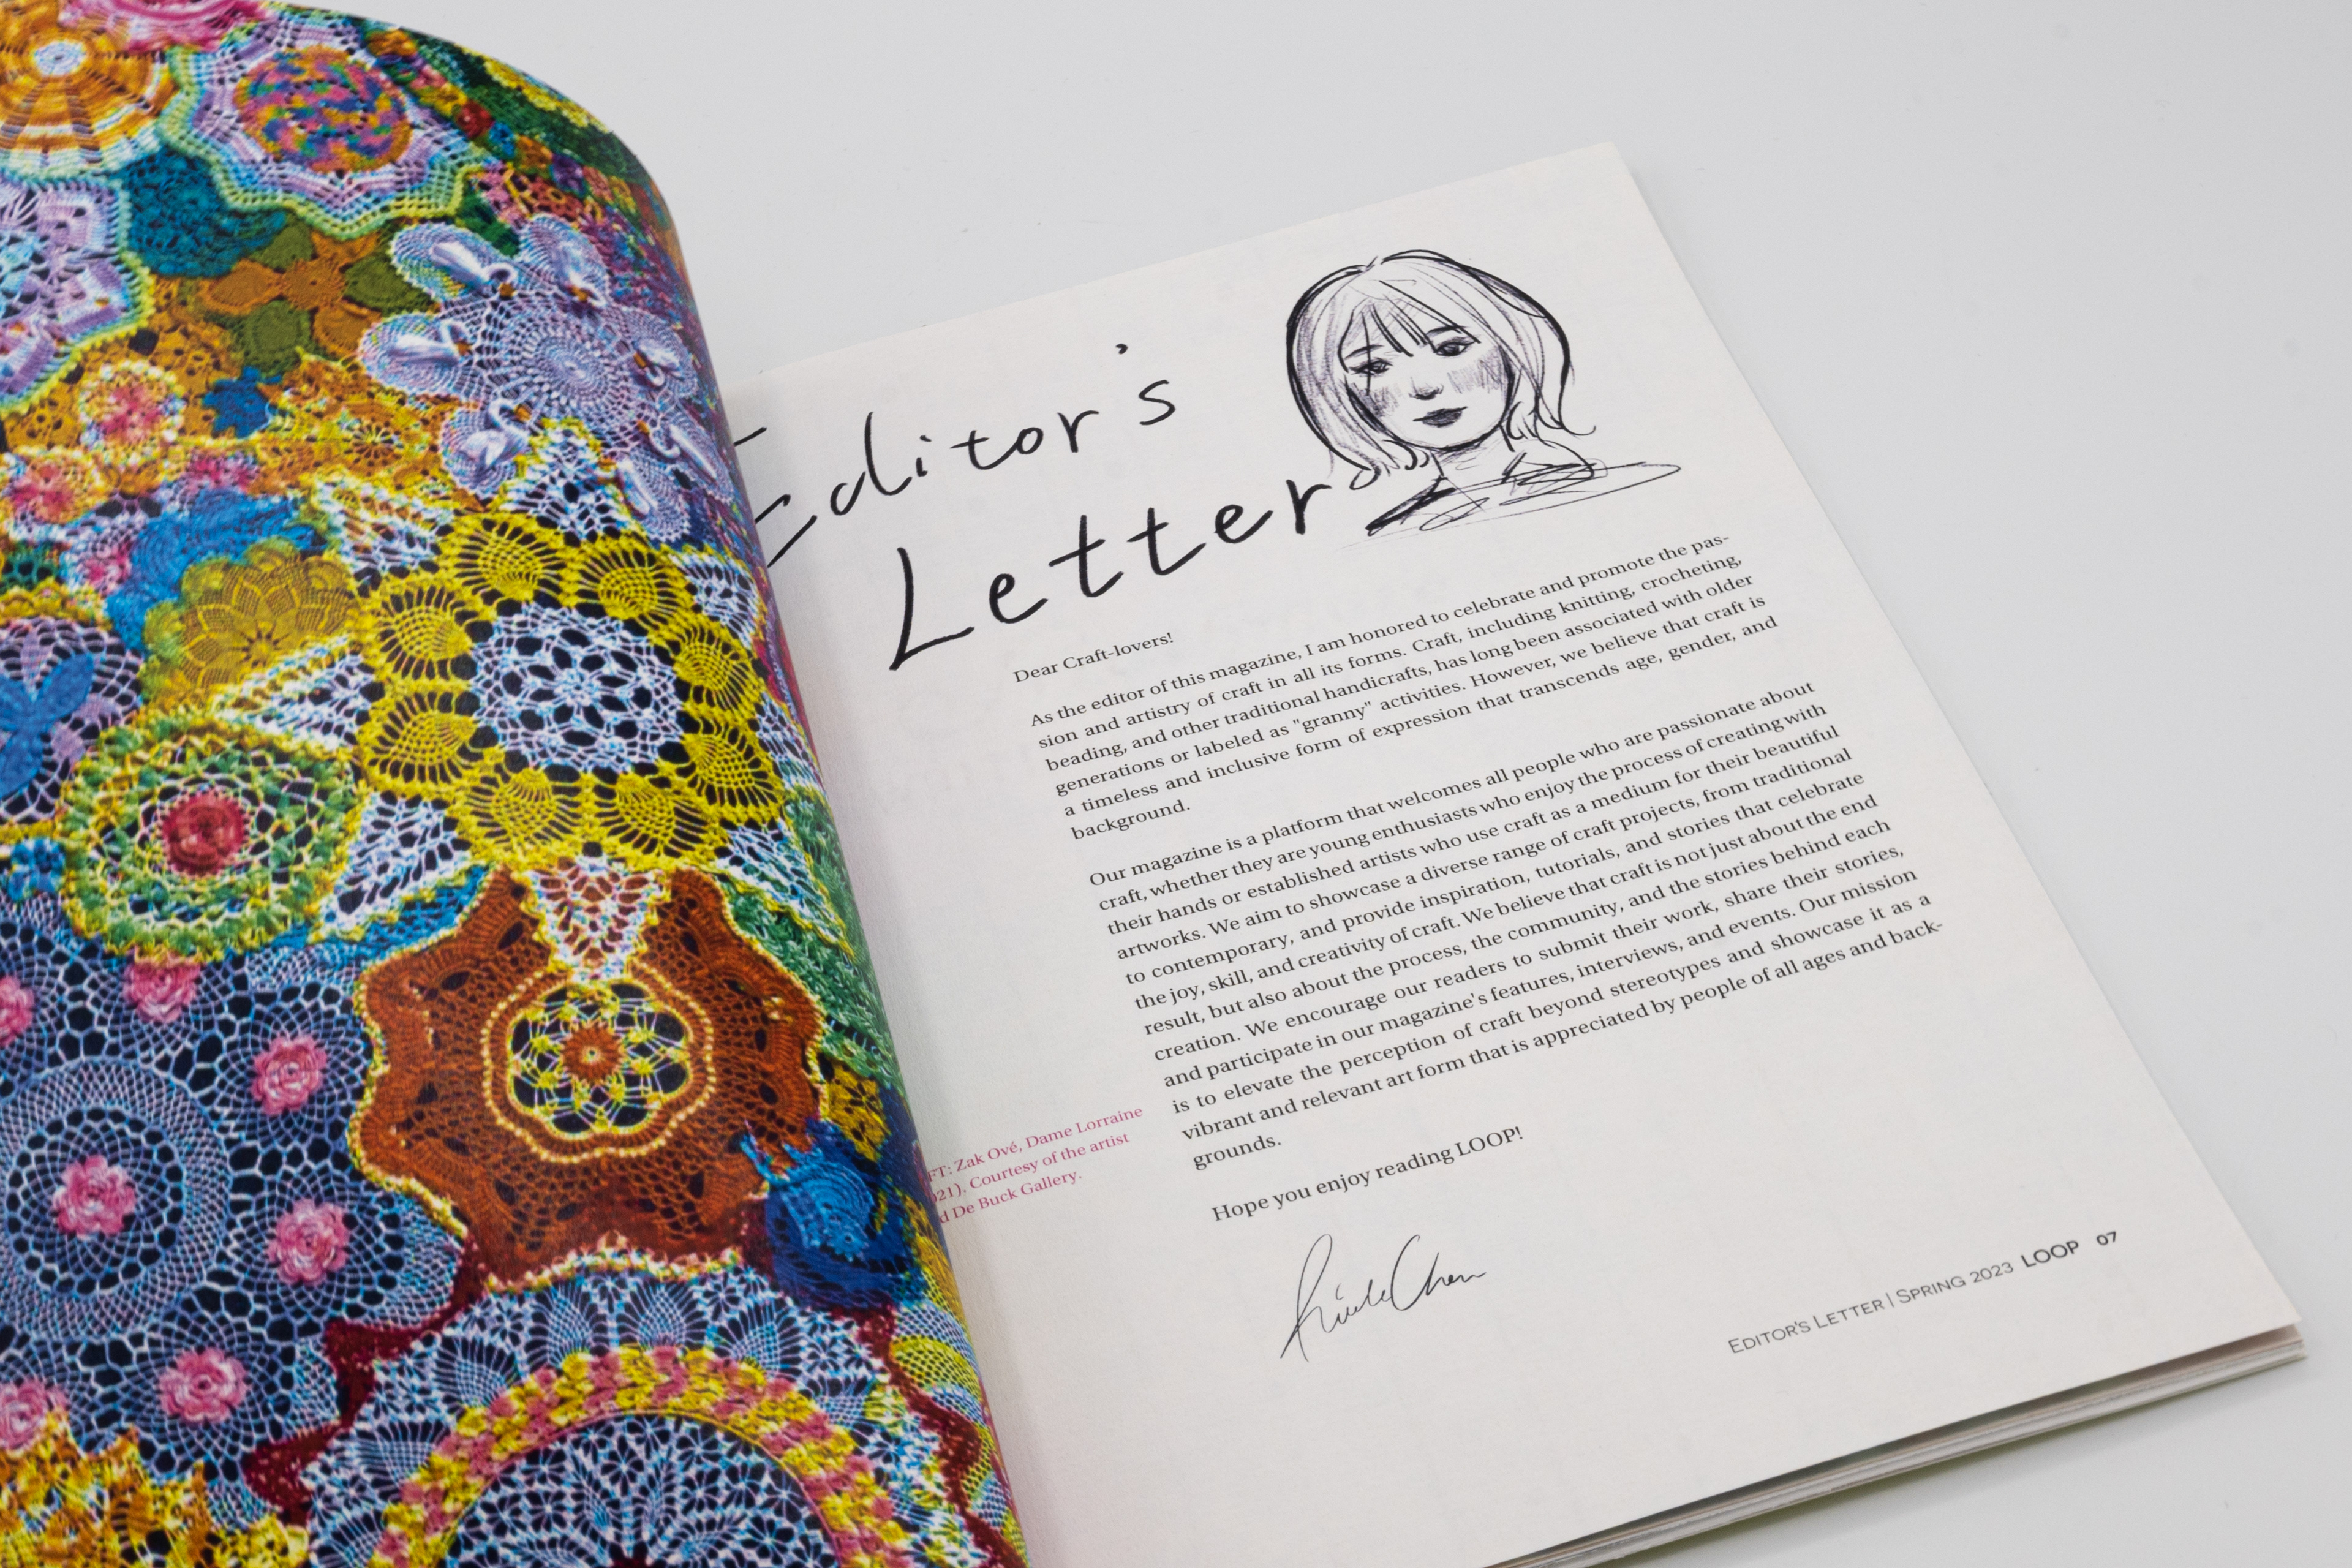 Editor's
Letter
Dear Craft-lovers!
As the editor of this magazine, I am honored to celebrate and promote the pas-
sion and artistry of craft in all its forms. Craft, including knitting, crocheting,
beading, and other traditional handicrafts, has long been associated with older
generations or labeled as "granny" activities. However, we believe that craft is
a timeless and inclusive form of expression that transcends age, gender, and
background.
Our magazine is a platform that welcomes all people who are passionate about
craft, whether they are young enthusiasts who enjoy the process of creating with
their hands or established artists who use craft as a medium for their beautiful
artworks. We aim to showcase a diverse range of craft projects, from traditional
to contemporary, and provide inspiration, tutorials, and stories that celebrate
the joy, skill, and creativity of craft. We believe that craft is not just about the end
result, but also about the process, the community, and the stories behind each
creation. We encourage our readers to submit their work, share their stories,
and participate in our magazine's features, interviews, and events. Our mission
is to elevate the perception of craft beyond stereotypes and showcase it as a
vibrant and relevant art form that is appreciated by people of all ages and back-
grounds.
Hope you enjoy reading LOOP!
FT: Zak Ové, Dame Lorraine
021). Courtesy of the artist
d De Buck Gallery.
Chen
EDITOR'S LETTER | SPRING 2023 LOOP 07